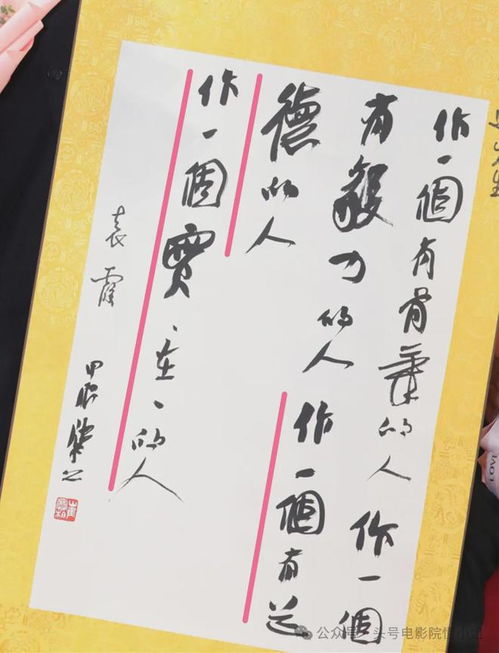 作一個有骨氣的人作一個
有毅力的人作一個有道
德的人
作一個實、在、的人
袁霞
甲辰
公众号 头号电影院